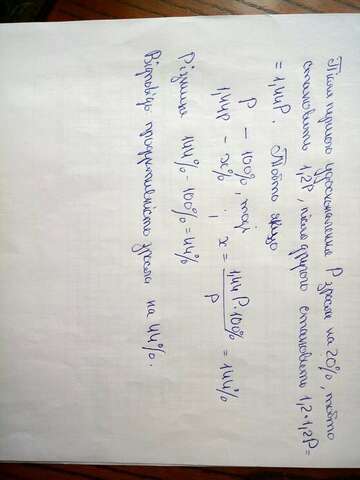 Після першого удосконалення P зросла на 20%, тобто
становить 1,2P, після другого становить 1,2·1,2P=
=1,44P. Тобто якщо
P — 100%, тоді
1,44P — x% ; x = 1,44P·100% / P = 144%
Різниця 144%-100%=44%
Відповідь продуктивність зросла на 44%.